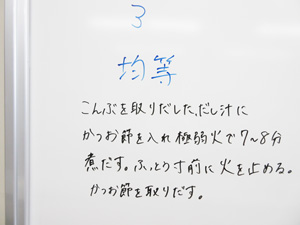 3
均等
こんぶを取りだした、だし汁に
かつお節を入れ極弱火で7~8分
煮だす。ふっとう寸前に火を止める。
かつお節を取りだす。